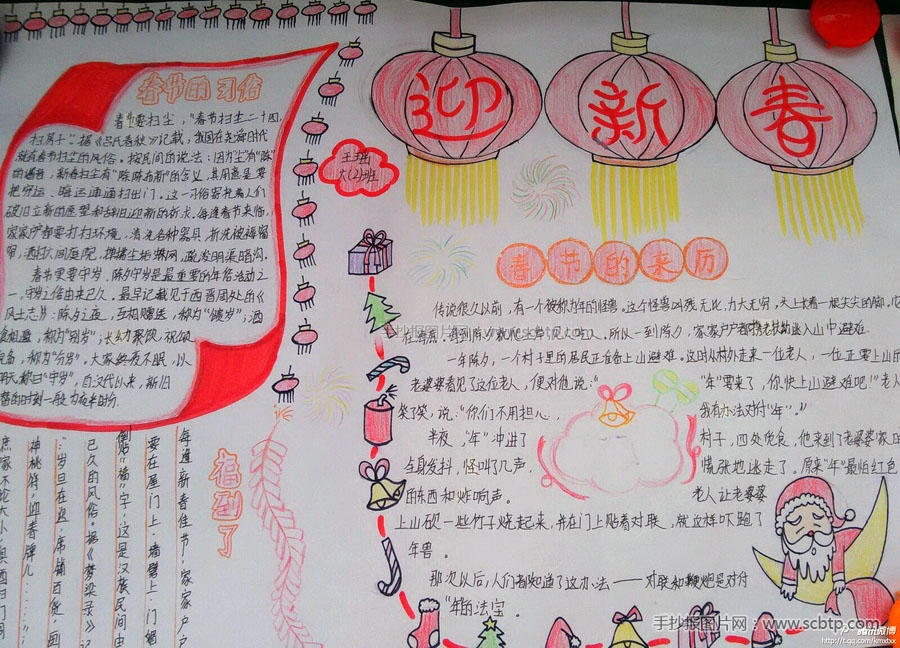 春节的习俗
春节要扫尘，"春节扫尘二十四，
扫房子"据《吕氏春秋》记载，我国在尧舜时代
就有春节扫尘的风俗。按民间的说法：因为尘与"陈"
的谐音，新春扫尘有"除陈布新"的含义，其用意是要
把穷运、晦运通通扫出门。这一习俗寄托着人们
破旧立新的愿望和辞旧迎新的祈求。每逢春节来临，
家家户户都要打扫环境，清洗各种器具，拆洗被褥窗
帘，洒扫六闾庭院，掸拂尘垢蛛网，疏浚明渠暗沟。
春节更要守岁，除夕守岁是最重要的年俗活动之
一，守岁之俗由来已久。最早记载见于西晋周处的《
风土志》：除夕之夜，互相赠送，称为"馈岁"；酒
长幼聚饮，祝颂
称为"分岁"。大家终夜不眠，以
称曰"守岁"，自汉代以来，新旧
王瑶
六(2)班
迎新春
春节的来历
传说很久以前，有一个被称为年的怪兽，这个怪兽凶残无比，力大无穷，头上长着一根尖尖的角，
所以一到除夕，家家户户都扶老携幼逃入山中避难。
一年除夕，一个村子里的居民正准备上山避难。这时从村外走来一位老人，一位正要上山的
老婆婆看见了这位老人，便对他说：""年"要来了，你快上山避难吧！"老人
笑了笑，说："你们不用担心，我有办法对付"年"。"
半夜，"年"冲进了村子，四处觅食，他来到了老婆婆家
全身发抖，怪叫了几声，慌张地逃走了。原来"年"最怕红色
的东西和炸响声。老人让老婆婆
上山砍一些竹子烧起来，并在门上贴着对联，就这样吓跑了
年兽。
那次以后，人们都知道了这办法——对联和鞭炮是对付
"年"的法宝。
福到了
每逢新春佳节，家家户户
要在屋门上、墙壁上、门楣
倒贴"福"字，这是汉族民间由
已久的风俗。据《梦粱录》记
："岁旦在迩，席铺百货，画
神桃符，迎春牌儿……"
手抄报图片网
手抄报图片网：www.scbtp.com
腾讯微博
http://t.qq.com/kmxtxx